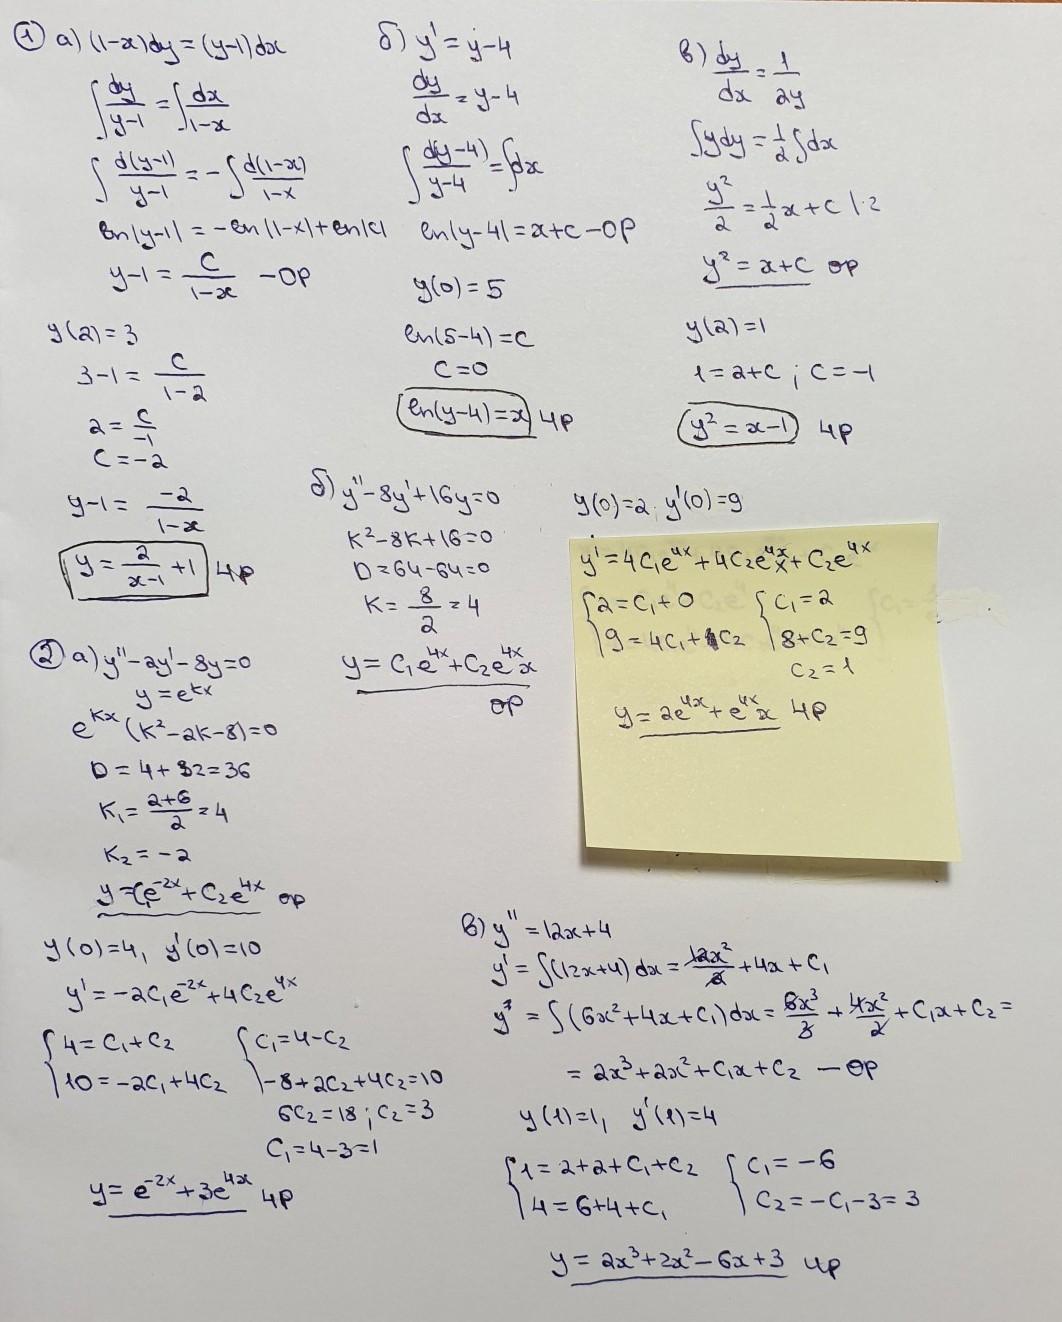 ① а) (1-x)dy = (y-1)dx
∫ dy/(y-1) = ∫ dx/(1-x)
∫ d(y-1)/(y-1) = -∫ d(1-x)/(1-x)
ln|y-1| = -ln|1-x| + ln|c|
y-1 = C/(1-x) - ОР
y(2) = 3
3-1 = C/(1-2)
2 = C/-1
C = -2
y-1 = -2/(1-x)
y = 2/(x-1) + 1 ЧР
б) y' = y-4
dy/dx = y-4
∫ d(y-4)/(y-4) = ∫dx
ln|y-4| = x+c - ОР
y(0) = 5
ln(5-4) = c
C = 0
ln(y-4) = x ЧР
в) dy/dx = 1/2y
∫ydy = 1/2 ∫dx
y²/2 = 1/2 x + c |·2
y² = x+c ОР
y(2) = 1
1 = 2+c ; C = -1
y² = x-1 ЧР
② а) y'' - 2y' - 8y = 0
y = e^kx
e^kx (k² - 2k - 8) = 0
D = 4 + 32 = 36
K₁ = (2+6)/2 = 4
K₂ = -2
y = C₁e^-2x + C₂e^4x ОР
y(0) = 4, y'(0) = 10
y' = -2C₁e^-2x + 4C₂e^4x
{ 4 = C₁ + C₂ { C₁ = 4 - C₂
10 = -2C₁ + 4C₂ -8 + 2C₂ + 4C₂ = 10
6C₂ = 18 ; C₂ = 3
C₁ = 4 - 3 = 1
y = e^-2x + 3e^4x ЧР
б) y'' - 8y' + 16y = 0
K² - 8K + 16 = 0
D = 64 - 64 = 0
K = 8/2 = 4
y = C₁e^4x + C₂e^4x x
ОР
y(0) = 2, y'(0) = 9
y' = 4C₁e^4x + 4C₂e^4x x + C₂e^4x
{ 2 = C₁ + 0 { C₁ = 2
9 = 4C₁ + C₂ 8 + C₂ = 9
C₂ = 1
y = 2e^4x + e^4x x ЧР
в) y'' = 12x + 4
y' = ∫(12x+4)dx = 12x²/2 + 4x + C₁
y = ∫(6x² + 4x + C₁)dx = 6x³/3 + 4x²/2 + C₁x + C₂ =
= 2x³ + 2x² + C₁x + C₂ - ОР
y(1) = 1, y'(1) = 4
{ 1 = 2 + 2 + C₁ + C₂ { C₁ = -6
4 = 6 + 4 + C₁ C₂ = -C₁ - 3 = 3
y = 2x³ + 2x² - 6x + 3 ЧР